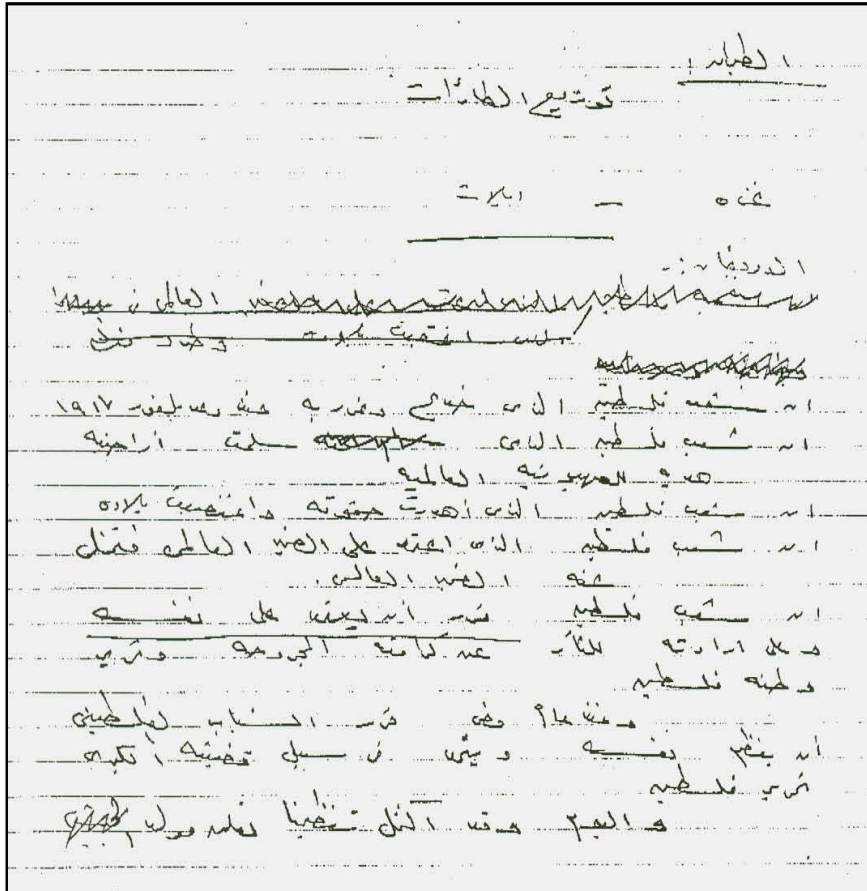 الطيارة :
توزيع الطائرات
غزه — ايلات
العالمي في
اغتصبت بلاده
ان شعب فلسطين الذي خدع وغرر به منذ وعد بلفور ١٩١٧
ان شعب فلسطين الذي سلمت اراضيه
هديه للصهيونيه العالميه
ان شعب فلسطين الذي أهدرت حقوقه واغتصبت بلاده
ان شعب فلسطين الذي اعتمد على الضمير العالمي فتخلى
عنه الضمير العالمي .
ان شعب فلسطين قرر أن يعتمد على نفسه
وعلى ارادته للثأر عن كرامته المجروحه وتحرير
وطنه فلسطين
ومنذ عام وض قرر الشباب الفلسطيني
أن ينظم نفسه في سبيل قضيته الكبرى
تحرير فلسطين
واليوم وقد اكتمل تنظيمنا نعلن مولد